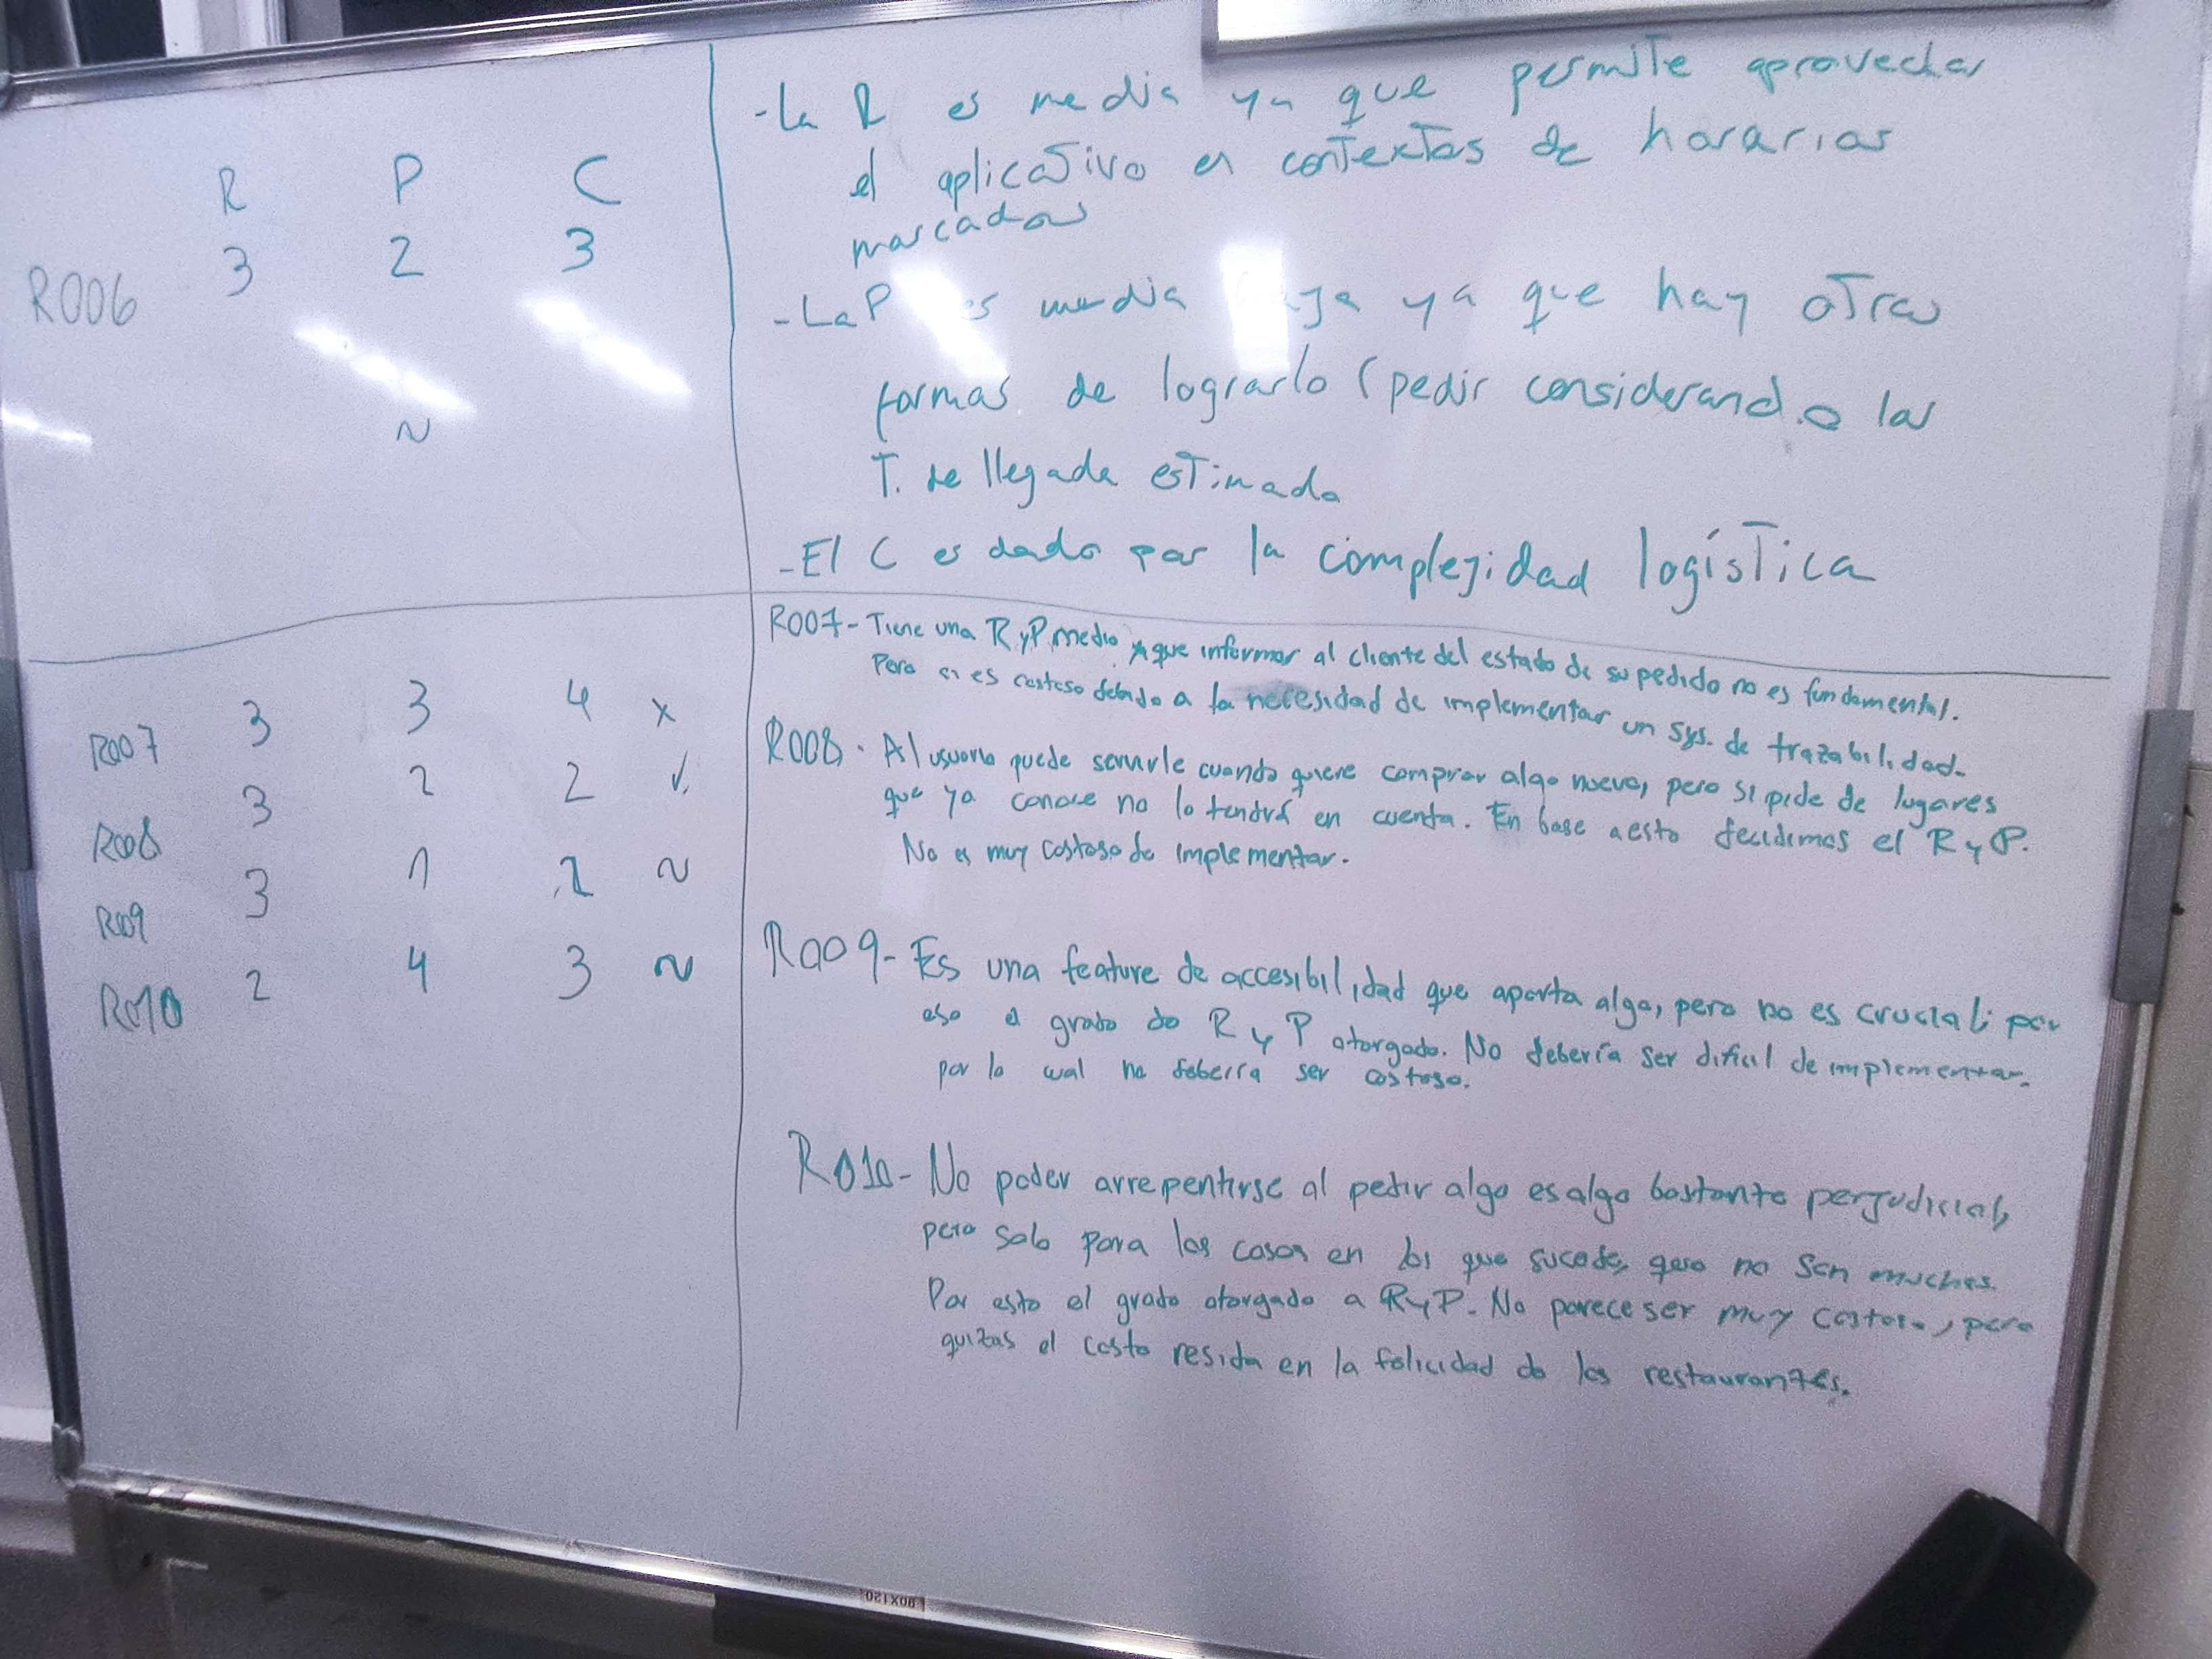 R P C
R006 3 2 3
~
- La R es media ya que permite aprovechar
el aplicativo en contextos de horarios
marcados
- La P es media ya que hay otras
formas de lograrlo (pedir considerando las
T. de llegada estimada
- El C es dado por la complejidad logística
R007 3 3 4 x
R008 3 2 2 ✓
R009 3 1 ~
R010 2 4 3 ~
R007 - Tiene una R y P medio ya que informar al cliente del estado de su pedido no es fundamental.
Pero es costoso debido a la necesidad de implementar un sys. de trazabilidad.
R008. Al usuario puede servirle cuando quiere comprar algo nuevo, pero si pide de lugares
que ya conoce no lo tendrá en cuenta. En base a esto decidimos el R y P.
No es muy costoso de implementar.
R009 - Es una feature de accesibilidad que aporta algo, pero no es crucial; por
eso el grado de R y P otorgado. No debería ser dificil de implementar.
por lo cual no debería ser costoso.
R010 - No poder arrepentirse al pedir algo es algo bastante perjudicial,
pero solo para los casos en los que sucede, que no son muchos.
Por esto el grado otorgado a R y P. No parece ser muy costoso, pero
quizas el costo resida en la felicidad de los restaurantes.
90X120